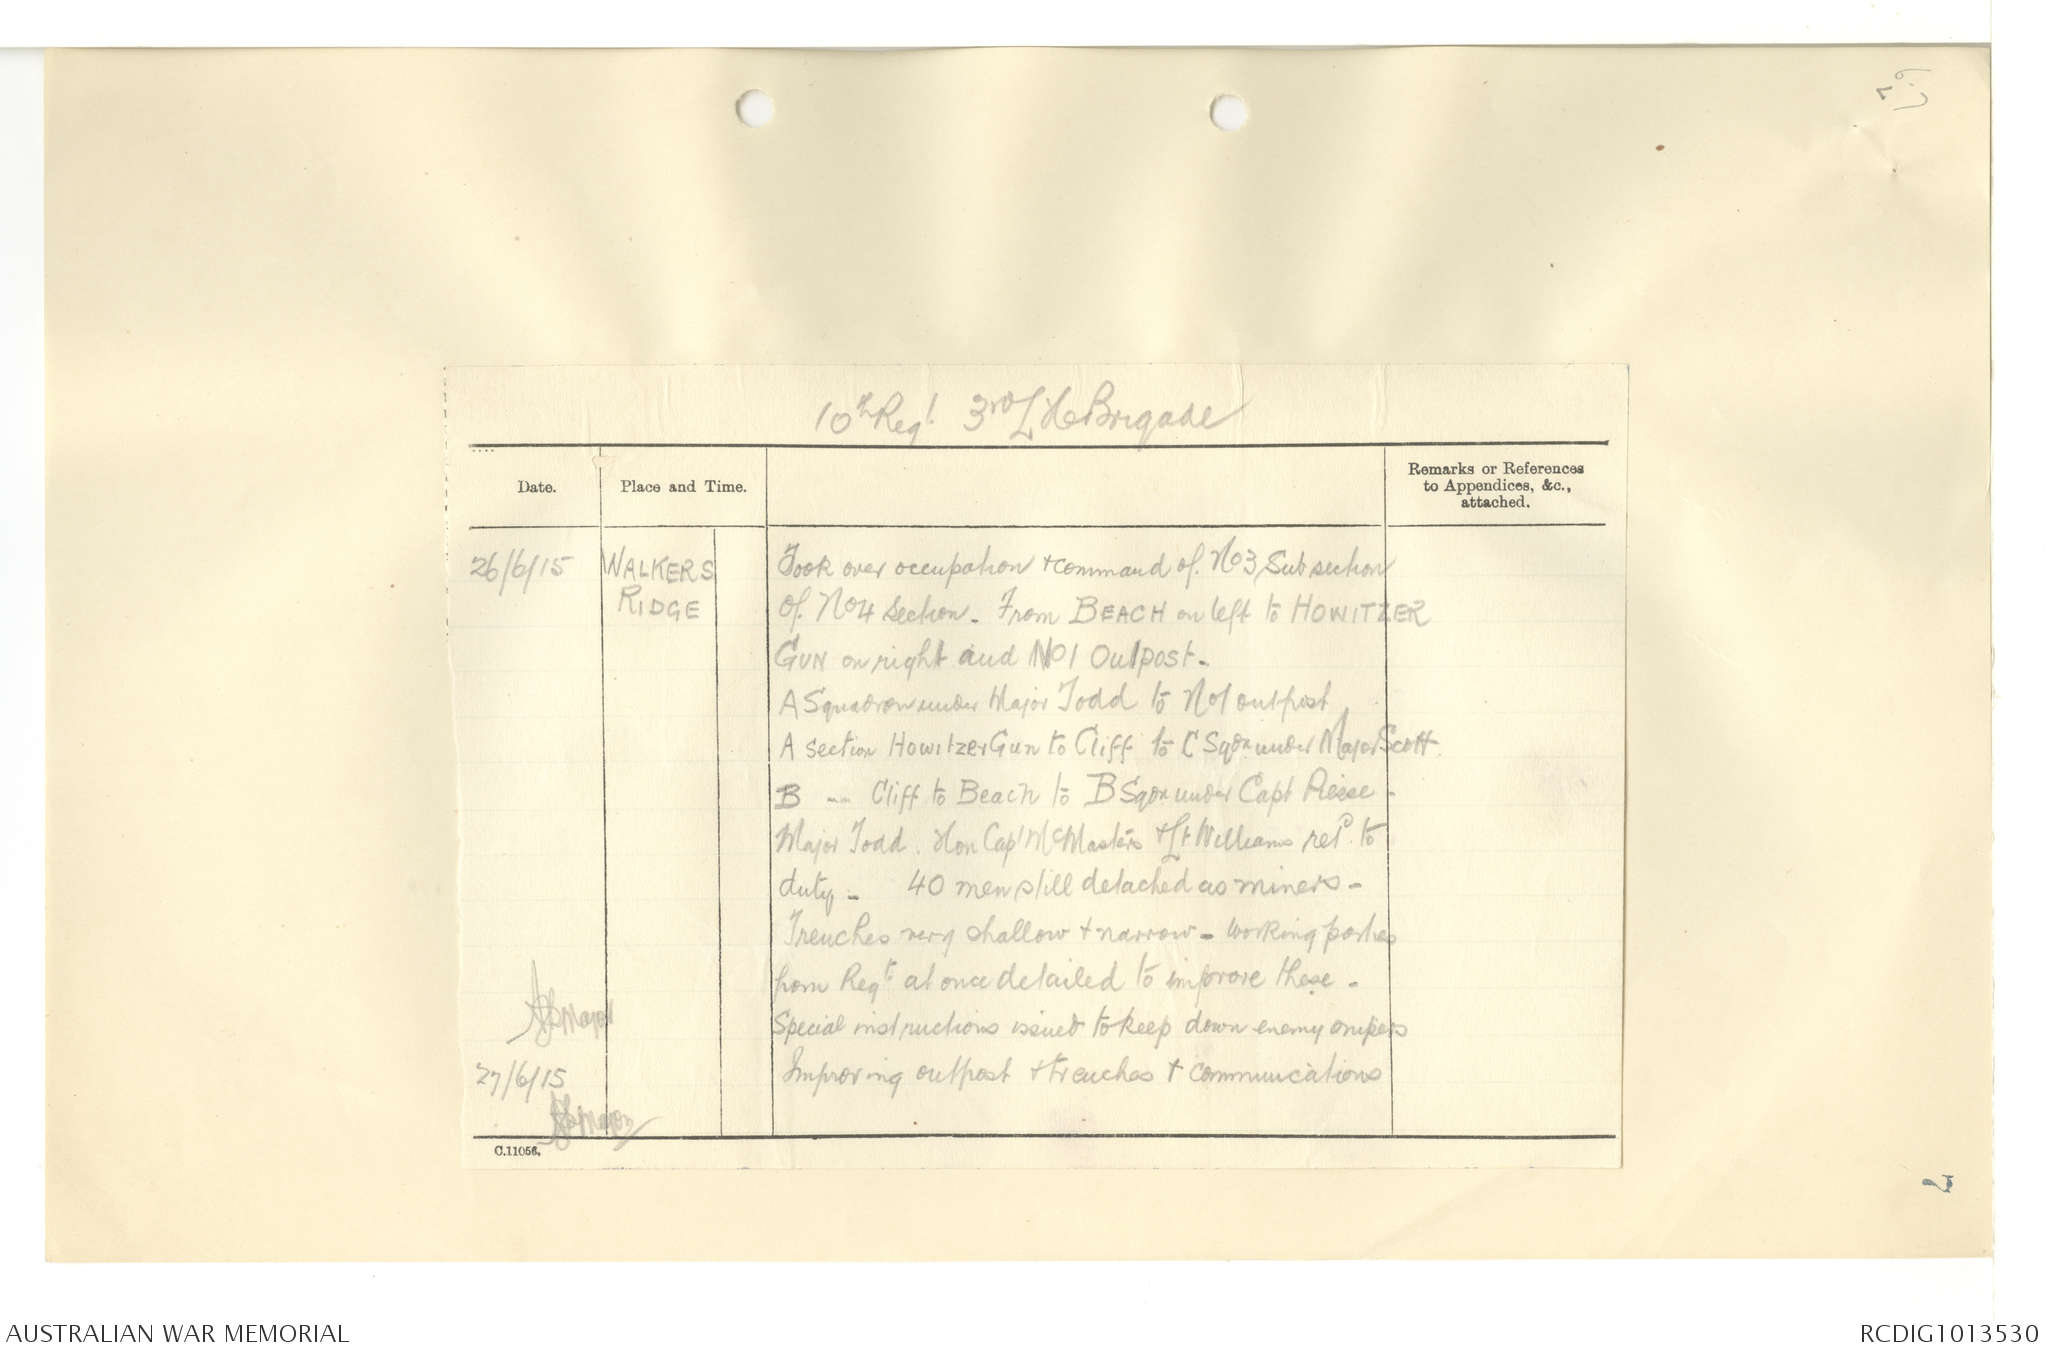 10th Regt 3rd LH Brigade
Date.
Place and Time.
Remarks or References
to Appendices, &c.,
attached.
26/6/15
WALKERS
RIDGE
Took over occupation + command of No3 Subsection
of No4 Section. From BEACH on left to HOWITZER
GUN on right and No1 Outpost -
A Squadron under Major Todd to No1 outpost
A section Howitzer Gun to Cliff to C Sqdn under Major Scott
B -- Cliff to Beach to B Sqdn under Capt Piesse -
Major Todd. Hon Capt McMasters + Lt Williams retd to
duty - 40 men still detached as miners -
Trenches very shallow + narrow - working parties
from Regt at once detailed to improve these -
Special instructions issued to keep down enemy snipers
Major
27/6/15
Improving outpost + trenches + communications
Major
C.11056.
AUSTRALIAN WAR MEMORIAL
RCDIG1013530